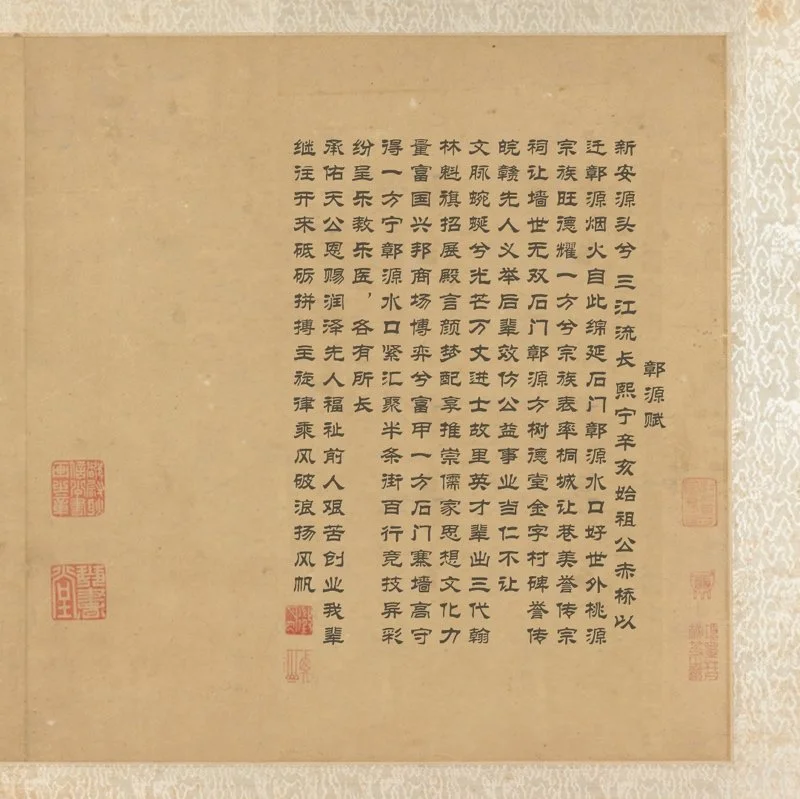 鄣源赋
新安源头兮三江流长熙宁辛亥始祖公赤桥以
迁鄣源烟火自此绵延石门鄣源水口好世外桃源
宗族旺德耀一方兮宗族表率桐城让巷美誉传宗
祠让墙世无双石门鄣源方树德堂金字村碑誉传
皖赣先人义举后辈效仿公益事业当仁不让
文脉蜿蜒兮光芒万丈进士故里英才辈出三代翰
林魁旗招展殿言颜梦配享推崇儒家思想文化力
量富国兴邦商场博弈兮富甲一方石门寨墙高守
得一方宁鄣源水口紧汇聚半条街百行竞技异彩
纷呈乐教乐医，各有所长
承佑天公恩赐润泽先人福祉前人艰苦创业我辈
继往开来砥砺拼搏主旋律乘风破浪扬风帆